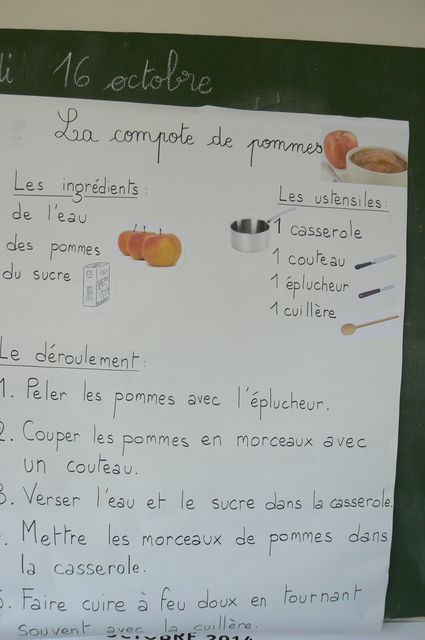 di 16 octobre
La compote de pommes
Les ingrédients :
de l'eau
des pommes
du sucre
Les ustensiles :
1 casserole
1 couteau
1 éplucheur
1 cuillère
Le déroulement :
1. Peler les pommes avec l'éplucheur.
2. Couper les pommes en morceaux avec
un couteau.
3. Verser l'eau et le sucre dans la casserole.
. Mettre les morceaux de pommes dans
la casserole.
5. Faire cuire à feu doux en tournant
souvent avec la cuillère.
OCTOBRE 2014